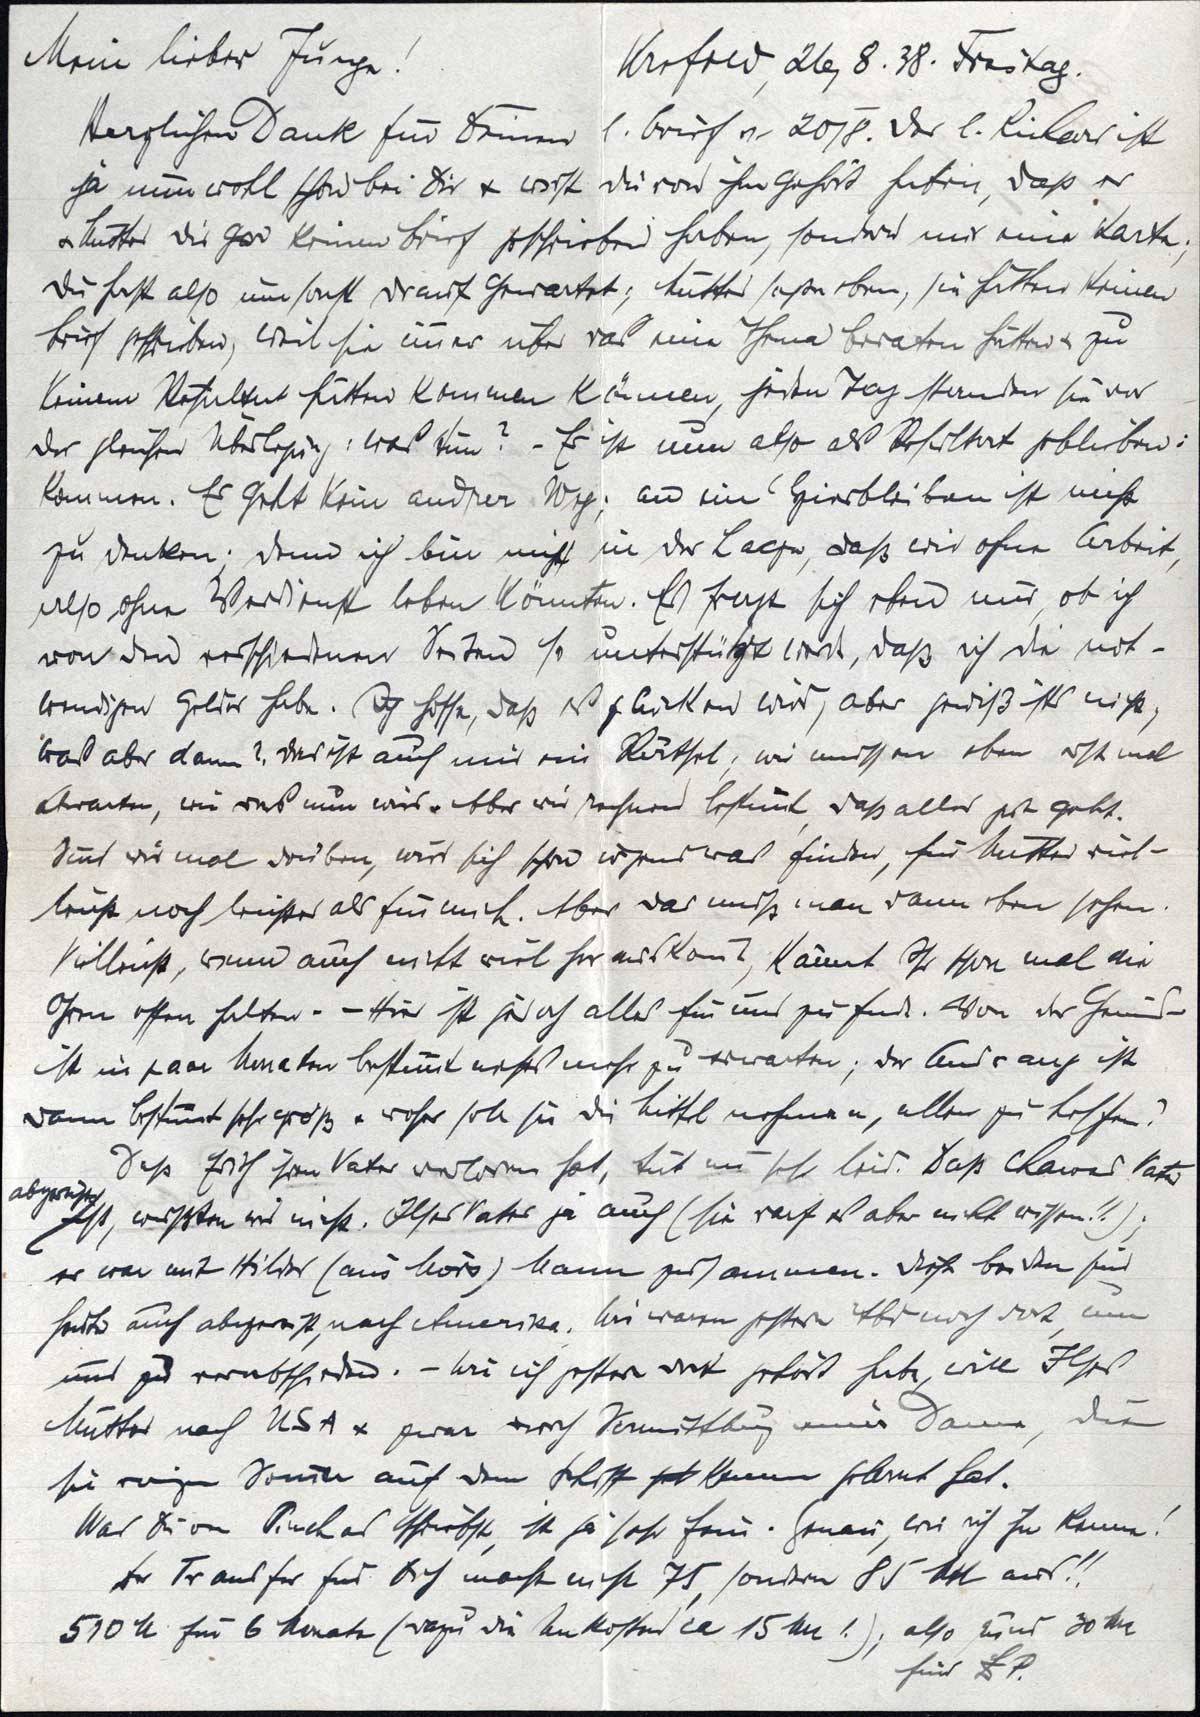 Mein lieber Junge! Krefeld, 26, 8. 38. Freitag.
Herzlichen Dank für Deinen l. Brief v. 20/8. Der l. Richard ist
ja nun wohl schon bei Dir & wirst du von ihm gehört haben, daß er
& Mutter dir gar keinen Brief geschrieben haben, sondern nur eine Karte;
Du hast also umsonst drauf gewartet; Mutter sagte eben, sie hätten keinen
Brief geschrieben, weil sie immer über das eine Thema beraten hätten & zu
keinem Resultat hätten kommen können, jeden Tag standen sie vor
der gleichen Überlegung: was tun? - Es ist nun also als Resultat geblieben:
Kommen. Es geht kein andrer Weg; an ein Hierbleiben ist nicht
zu denken; denn ich bin nicht in der Lage, daß wir ohne Arbeit,
also ohne Verdienst leben könnten. Es fragt sich eben nur, ob ich
von den verschiedenen Seiten so unterstützt werde, daß ich die not-
wendigen Gelder habe. Ich hoffe, daß es glücken wird, aber gewiß ists nicht;
was aber dann? Das ist auch mir ein Rätsel; wir müssen eben erst mal
abwarten, wie das nun wird. Aber wir rechnen bestimmt, daß alles gut geht.
Sind wir mal drüben, wird sich schon irgend was finden, für Mutter viel-
leicht noch leichter als für mich. Aber das muß man dann eben sehen.
Vielleicht, wenn auch nicht viel her auskommt, könnt Ihr schon mal die
Ohren offen halten. - Hier ist jedoch alles für uns zu Ende. Von der Gemeinde
ist in paar Monaten bestimmt nichts mehr zu erwarten; der Andrang ist
dann bestimmt sehr groß & woher soll sie die Mittel nehmen, allen zu helfen?
Daß Erich seinen Vater verloren hat, tut mir sehr leid. Daß Chawas Vater
abgereist
ist, wußten wir nicht. Ilses Vater ja auch (sie darf es aber nicht wissen!!);
er war mit Hildes (aus Mörs) Mann zusammen. Diese beiden sind
heute auch abgereist, nach Amerika. Wir waren gestern Abd noch dort, um
uns zu verabschieden. - Wie ich gestern dort gehört habe, will Ilses
Mutter nach USA & zwar durch Vermittlung einer Dame, die
sie vorigen Sommer auf dem Schiff kennen gelernt hat.
Was Du von Pinchas schreibst, ist ja sehr fein. Genau, wie ich ihn kenne!
Der Transfer für Dich macht nicht 75, sondern 85 Mk aus!!
510 M für 6 Monate (dazu die Unkosten ca 15 Mk!); also rund 30 Mk
für £P.